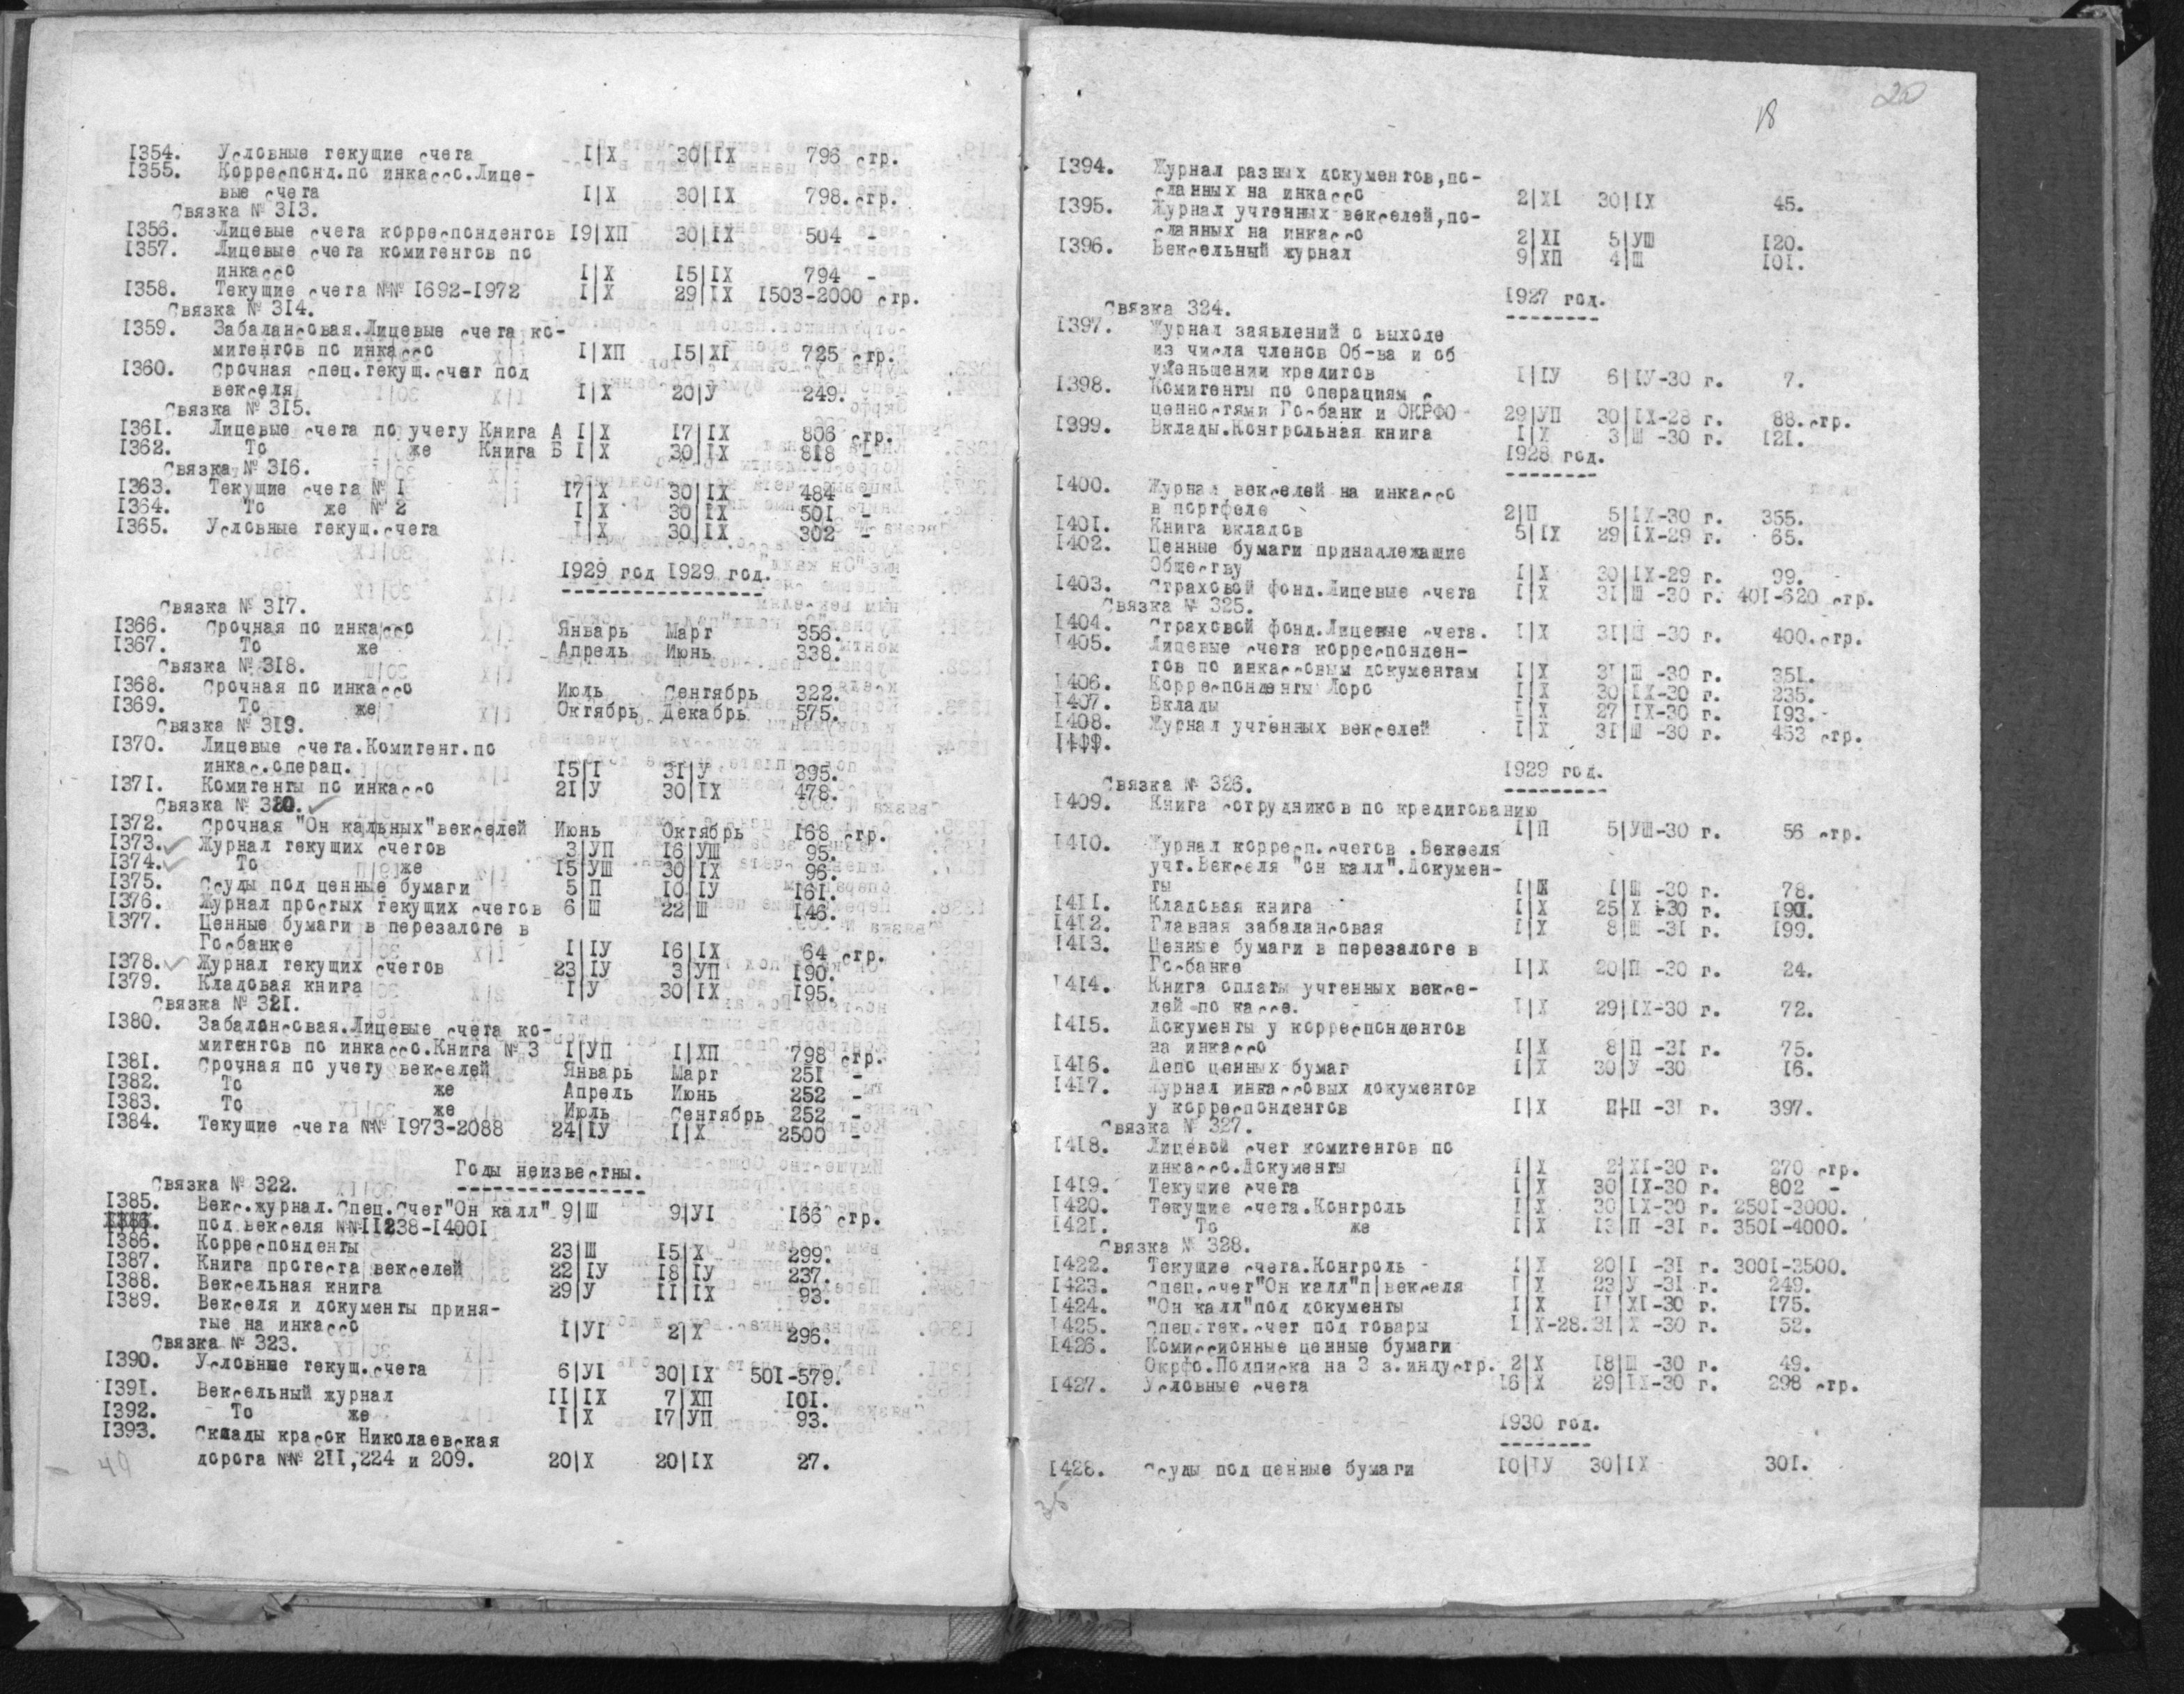 1354. Условные текущие счета I|X 30|IX 796 стр.
1355. Корреспонд.по инкассо.Лице-
вые счета I|X 30|IX 798.стр.
Связка № 313.
1356. Лицевые счета корреспондентов 19|ХП 30|IX 504 -
1357. Лицевые счета комитентов по
инкассо I|X 15|IX 794 -
1358. Текущие счета №№ 1692-1972 I|X 29|IX 1503-2000 стр.
Связка № 314.
1359. Забалансовая.Лицевые счета ко-
митентов по инкассо I|ХП 15|XI 725 стр.
1360. Срочная спец.текущ.счет под
векселя I|X 20|У 249.
Связка № 315.
1361. Лицевые счета по учету Книга А I|X 17|IX 806 стр.
1362. То же Книга Б I|X 30|IX 818 -
Связка № 316.
1363. Текущие счета № 1 17|X 30|IX 484 -
1364. То же № 2 I|X 30|IX 501 -
1365. Условные текущ.счета I|X 30|IX 302 -
1929 год 1929 год.
Связка № 317.
1366. Срочная по инкассо Январь Март 356.
1367. То же Апрель Июнь 338.
Связка № 318.
1368. Срочная по инкассо Июль Сентябрь 322.
1369. То же Октябрь Декабрь 575.
Связка № 319.
1370. Лицевые счета.Комитент.по
инкас.операц. 15|I 31|У 395.
1371. Комитенты по инкассо 21|У 30|IX 478.
Связка № 320.
1372. Срочная "Он кальных"векселей Июнь Октябрь 168 стр.
1373. Журнал текущих счетов 3|УП 16|УШ 95.
1374. То же 15|УШ 30|IX 96.
1375. Ссуды под ценные бумаги 5|П 10|IУ 161.
1376. Журнал простых текущих счетов 6|Ш 22|Ш 146.
1377. Ценные бумаги в перезалоге в
Госбанке I|IУ 16|IX 64 стр.
1378. Журнал текущих счетов 23|IУ 3|УП 190.
1379. Кладовая книга I|У 30|IX 195.
Связка № 321.
1380. Забалонсовая.Лицевые счета ко-
митентов по инкассо.Книга № 3 I|УП I|ХП 798 стр.
1381. Срочная по учету векселей Январь Март 251 -
1382. То же Апрель Июнь 252 -
1383. То же Июль Сентябрь 252 -
1384. Текущие счета №№ 1973-2088 24|IУ I|X 2500 -
Годы неизвестны.
Связка № 322.
1385. Векс.журнал.Спец.Счет"Он калл" 9|Ш 9|УI 166 стр.
под векселя №№11238-14001
1386. Корреспонденты 23|Ш 15|X 299.
1387. Книга протеста векселей 22|IУ 18|IУ 237.
1388. Вексельная книга 29|У II|IX 93.
1389. Векселя и документы приня-
тые на инкассо I|УI 2|X 296.
Связка № 323.
1390. Условные текущ.счета 6|УI 30|IX 501-579.
1391. Вексельный журнал II|IX 7|ХП 101.
1392. То же I|X 17|УП 93.
1393. Склады красок Николаевская
дорога №№ 211,224 и 209. 20|X 20|IX 27.
49
18 20
1394. Журнал разных документов,по-
сланных на инкассо 2|XI 30|IX 45.
1395. Журнал учтенных векселей,по-
сланных на инкассо 2|XI 5|УШ 120.
1396. Вексельный журнал 9|ХП 4|Ш 101.
1927 год.
Связка 324.
1397. Журнал заявлений о выходе
из числа членов Об-ва и об
уменьшении кредитов I|IУ 6|IУ-30 г. 7.
1398. Комитенты по операциям с
ценностями Госбанк и ОКРФО 29|УП 30|IX-28 г. 88.стр.
1399. Вклады.Контрольная книга I|X 3|Ш -30 г. 121.
1928 год.
1400. Журнал векселей на инкассо
в портфеле 2|П 5|IX-30 г. 355.
1401. Книга вкладов 5|IX 29|IX-29 г. 65.
1402. Ценные бумаги принадлежащие
Обществу I|X 30|IX-29 г. 99.
1403. Страховой фонд.Лицевые счета I|X 31|Ш -30 г. 401-620 стр.
Связка № 325.
1404. Страховой фонд.Лицевые счета. I|X 31|Ш -30 г. 400.стр.
1405. Лицевые счета корреспонден-
тов по инкассовым документам I|X 31|Ш -30 г. 351.
1406. Корреспонденты Лоро I|X 30|IX-30 г. 235.
1407. Вклады I|X 27|IX-30 г. 193.
1408. Журнал учтенных векселей I|X 31|Ш -30 г. 453 стр.
1929 год.
Связка № 326.
1409. Книга сотрудников по кредитованию
I|П 5|УШ-30 г. 56 стр.
1410. Журнал корресп.счетов .Векселя
учт.Векселя "он калл".Докумен-
ты I|IX I|Ш -30 г. 78.
1411. Кладовая книга I|X 25|X -30 г. 191.
1412. Главная забалансовая I|X 8|Ш -31 г. 199.
1413. Ценные бумаги в перезалоге в
Госбанке I|X 20|П -30 г. 24.
1414. Книга оплаты учтенных вексе-
лей по кассе. I|X 29|IX-30 г. 72.
1415. Документы у корреспондентов
на инкассо I|X 8|П -31 г. 75.
1416. Депо ценных бумаг I|X 30|У -30 16.
1417. Журнал инкассовых документов
у корреспондентов I|X П|П -31 г. 397.
Связка № 327.
1418. Лицевой счет комитентов по
инкассо.Документы I|X 2|XI-30 г. 270 стр.
1419. Текущие счета I|X 30|IX-30 г. 802 -
1420. Текущие счета.Контроль I|X 30|IX-30 г. 2501-3000.
1421. То же I|X 13|П -31 г. 3501-4000.
Связка № 328.
1422. Текущие счета.Контроль I|X 20|I -31 г. 3001-3500.
1423. Спец.счет"Он калл"п|векселя I|X 23|У -31 г. 249.
1424. "Он калл"под документы I|X II|XI-30 г. 175.
1425. Спец.тек.счет под товары I|X-28. 31|X -30 г. 52.
1426. Комиссионные ценные бумаги
Окрфо.Подписка на 3 з.индустр. 2|X 18|Ш -30 г. 49.
1427. Условные счета 16|X 29|IX-30 г. 298 стр.
1930 год.
1428. Ссуды под ценные бумаги 10|IУ 30|IX 301.
35